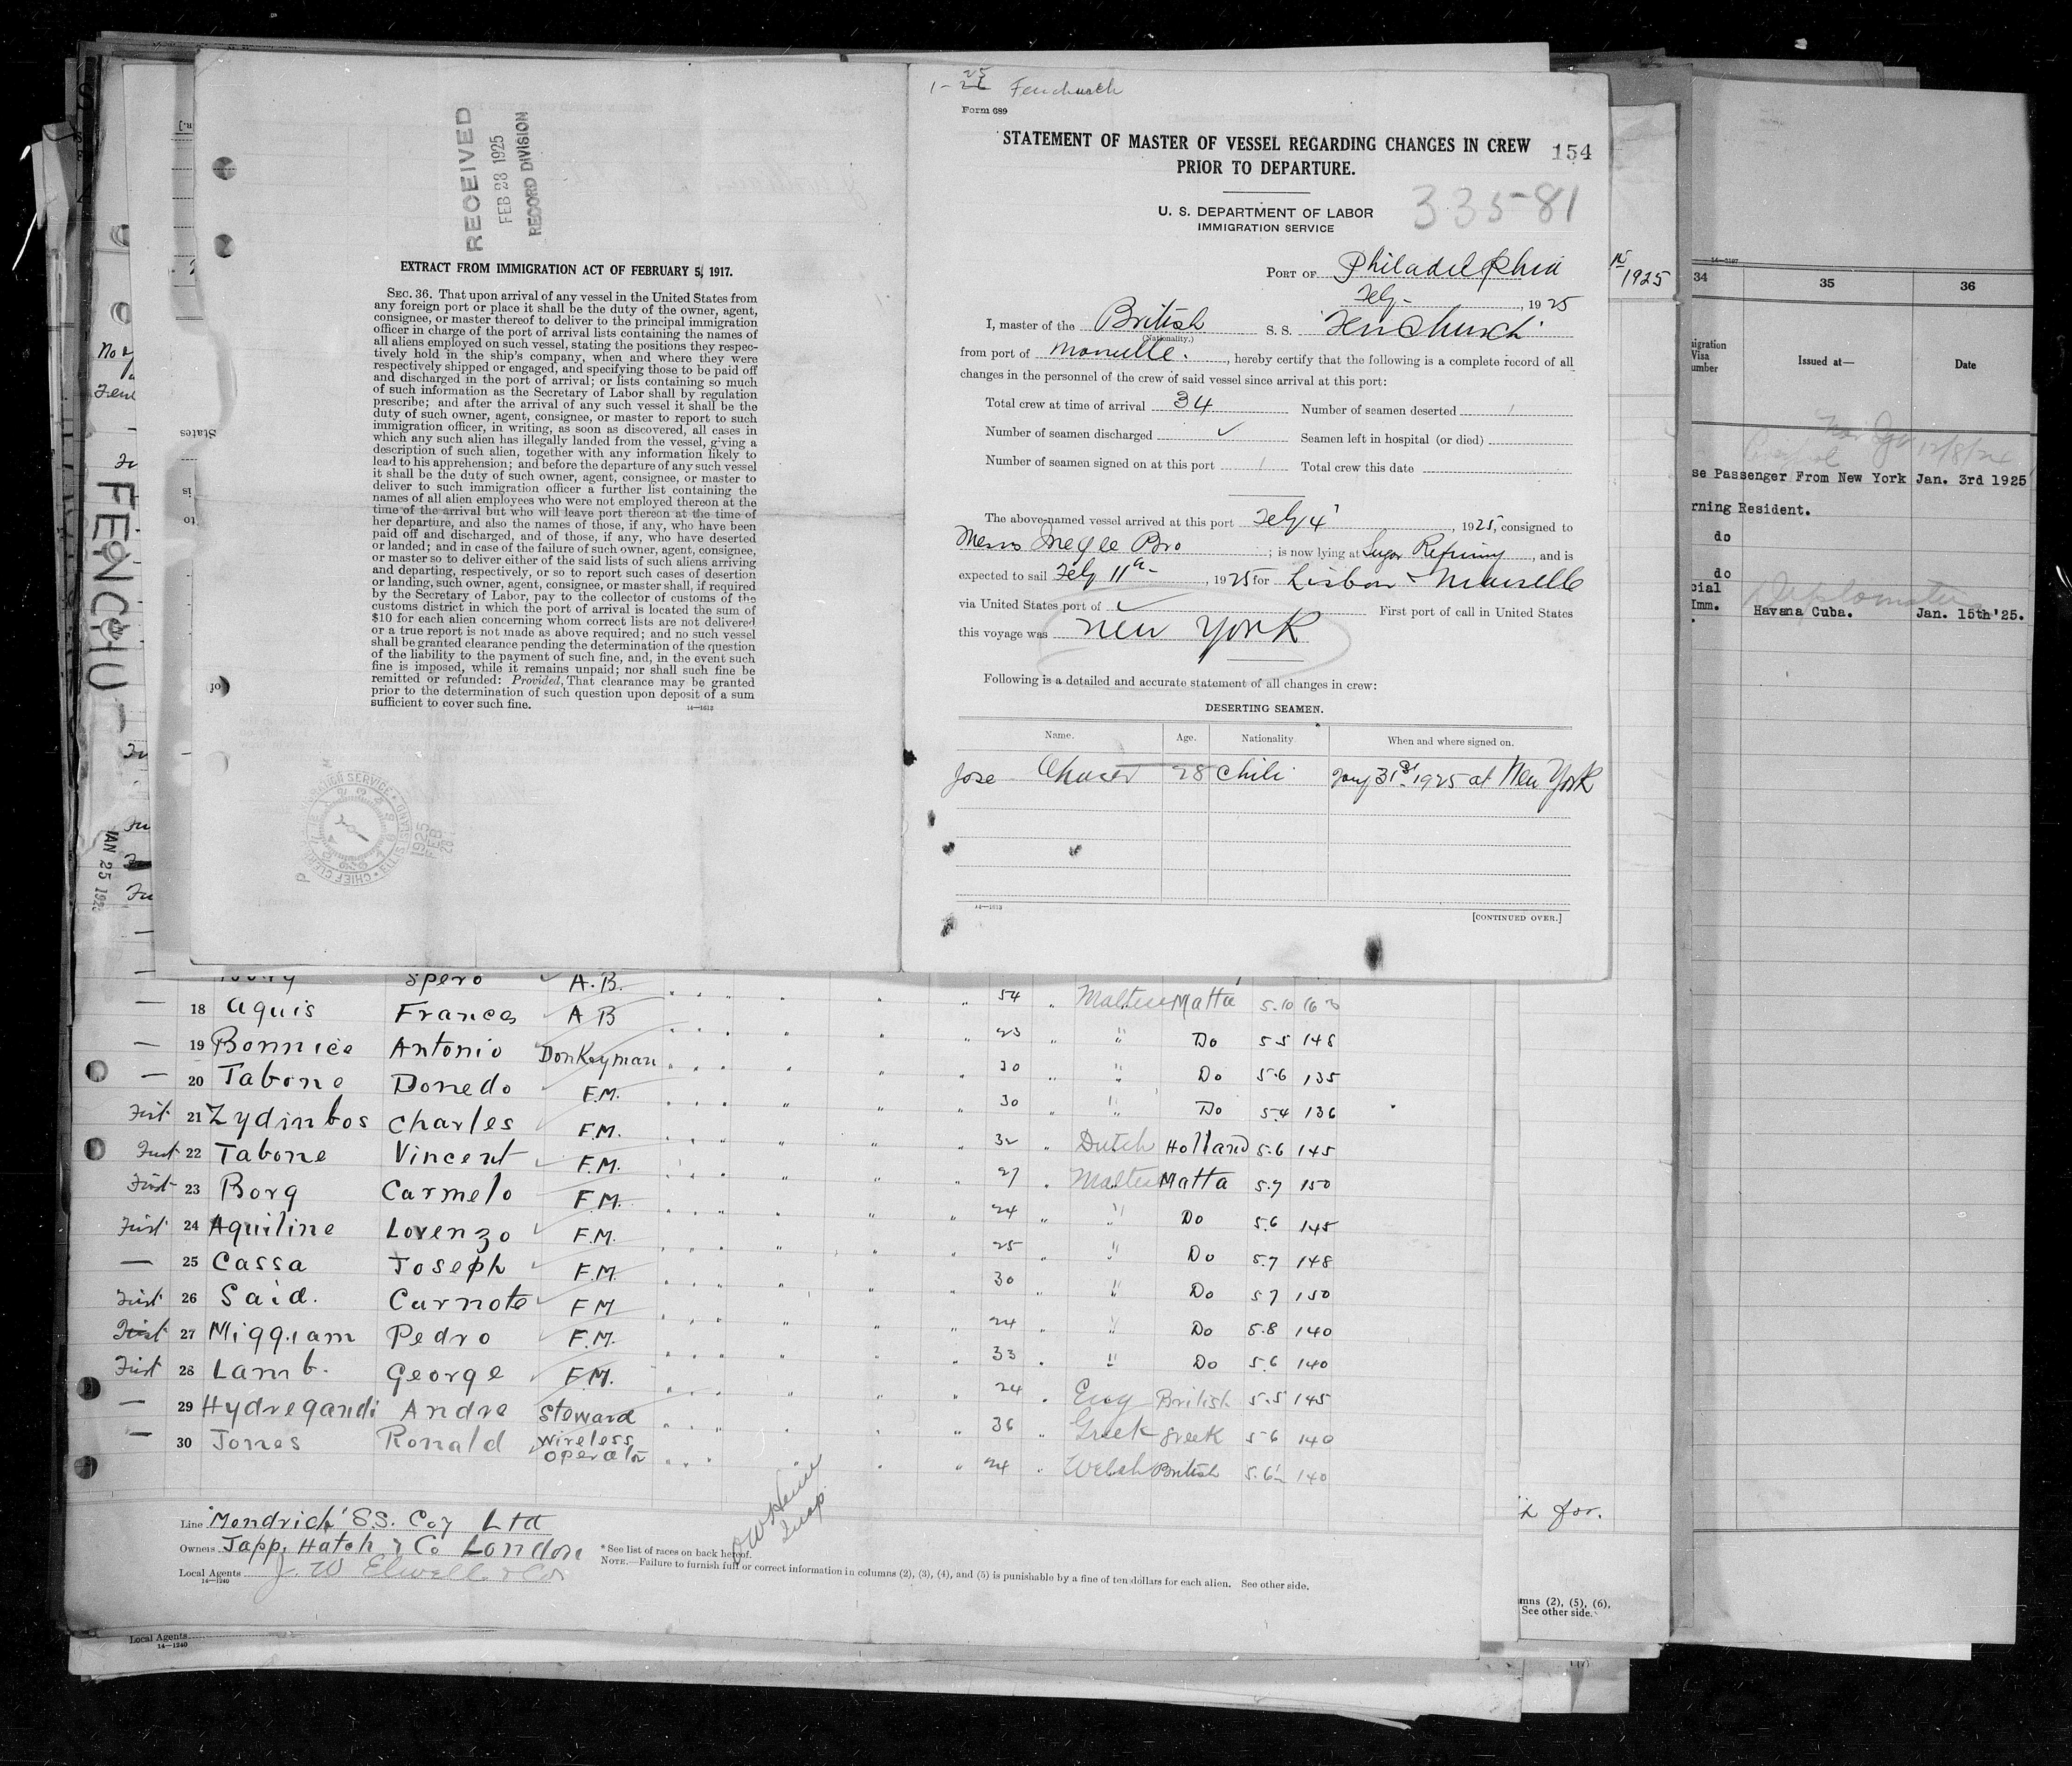 RECEIVED
FEB 28 1925
RECORD DIVISION
EXTRACT FROM IMMIGRATION ACT OF FEBRUARY 5, 1917.
SEC. 36. That upon arrival of any vessel in the United States from
any foreign port or place it shall be the duty of the owner, agent,
consignee, or master thereof to deliver to the principal immigration
officer in charge of the port of arrival lists containing the names of
all aliens employed on such vessel, stating the positions they respec-
tively hold in the ship's company, when and where they were
respectively shipped or engaged, and specifying those to be paid off
and discharged in the port of arrival; or lists containing so much
of such information as the Secretary of Labor shall by regulation
prescribe; and after the arrival of any such vessel it shall be the
duty of such owner, agent, consignee, or master to report to such
immigration officer, in writing, as soon as discovered, all cases in
which any such alien has illegally landed from the vessel, giving a
description of such alien, together with any information likely to
lead to his apprehension; and before the departure of any such vessel
it shall be the duty of such owner, agent, consignee, or master to
deliver to such immigration officer a further list containing the
names of all alien employees who were not employed thereon at the
time of the arrival but who will leave port thereon at the time of
her departure, and also the names of those, if any, who have been
paid off and discharged, and of those, if any, who have deserted
or landed; and in case of the failure of such owner, agent, consignee,
or master so to deliver either of the said lists of such aliens arriving
and departing, respectively, or so to report such cases of desertion
or landing, such owner, agent, consignee, or master shall, if required
by the Secretary of Labor, pay to the collector of customs of the
customs district in which the port of arrival is located the sum of
$10 for each alien concerning whom correct lists are not delivered
or a true report is not made as above required; and no such vessel
shall be granted clearance pending the determination of the question
of the liability to the payment of such fine, and, in the event such
fine is imposed, while it remains unpaid; nor shall such fine be
remitted or refunded: Provided, That clearance may be granted
prior to the determination of such question upon deposit of a sum
sufficient to cover such fine.
14—1613
Fenchurch
Form 689
STATEMENT OF MASTER OF VESSEL REGARDING CHANGES IN CREW
PRIOR TO DEPARTURE.
154
335-81
U. S. DEPARTMENT OF LABOR
IMMIGRATION SERVICE
PORT OF Philadelphia
Feby -, 1925
I, master of the British S. S. Fenchurch
(Nationality.)
from port of, hereby certify that the following is a complete record of all
changes in the personnel of the crew of said vessel since arrival at this port:
Total crew at time of arrival 34 Number of seamen deserted 1
Number of seamen discharged ✓ Seamen left in hospital (or died)
Number of seamen signed on at this port 1 Total crew this date
The above-named vessel arrived at this port Feby 4, 1925, consigned to
Messrs McGee Bro; is now lying at Sugar Refining, and is
expected to sail Feby 11th, 1925 for Lisbon &
via United States port of ✓ First port of call in United States
this voyage was New York
Following is a detailed and accurate statement of all changes in crew:
DESERTING SEAMEN.
Name. Age. Nationality. When and where signed on.
Jose 28 Chili Jany 31st 1925 at New York
14—1613
[CONTINUED OVER.]
FENCHU
JAN 25
1925
34 35 36
Issued at— Date
Passenger From New York Jan. 3rd 1925
rning Resident.
do
do
Havana Cuba. Jan. 15th '25.
Spero A.B. 54 Matta 5.10
— 18 Aquis Frances A B 23 " Do 5-5 148
— 19 Bonnice Antonio Donkeyman 30 " Do 5.6 135
— 20 Tabone Donedo F.M. 30 " Do 5.4 136
First 21 Zydinbos Charles F.M. 32 Dutch Holland 5.6 145
First 22 Tabone Vincent F.M. 27 Maltese Matta 5.7 150
First 23 Borg Carmelo F.M. 24 " Do 5.6 145
First 24 Aquiline Lorenzo F.M. 25 " Do 5.7 148
— 25 Cassa Joseph F.M. 30 " Do 5.7 150
First 26 Said. Carnote F.M 24 " Do 5.8 140
First 27 Miggiam Pedro F.M. 33 " Do 5.6 140
First 28 Lamb. George F.M. 24 Eng British 5.5 145
— 29 Hydregandi Andre Steward 36 Greek Greek 5.6 140
— 30 Jones Ronald Wireless Operator 24 Welsh British 5.6½ 140
Line "Mendrick" SS. Coy Ltd
Owners Japp, Hatch & Co London
Local Agents J. W Elwell & Co
14—1240
* See list of races on back hereof.
NOTE.—Failure to furnish full or correct information in columns (2), (3), (4), and (5) is punishable by a fine of ten dollars for each alien. See other side.
mns (2), (5), (6),
See other side.
Local Agents
14—1240